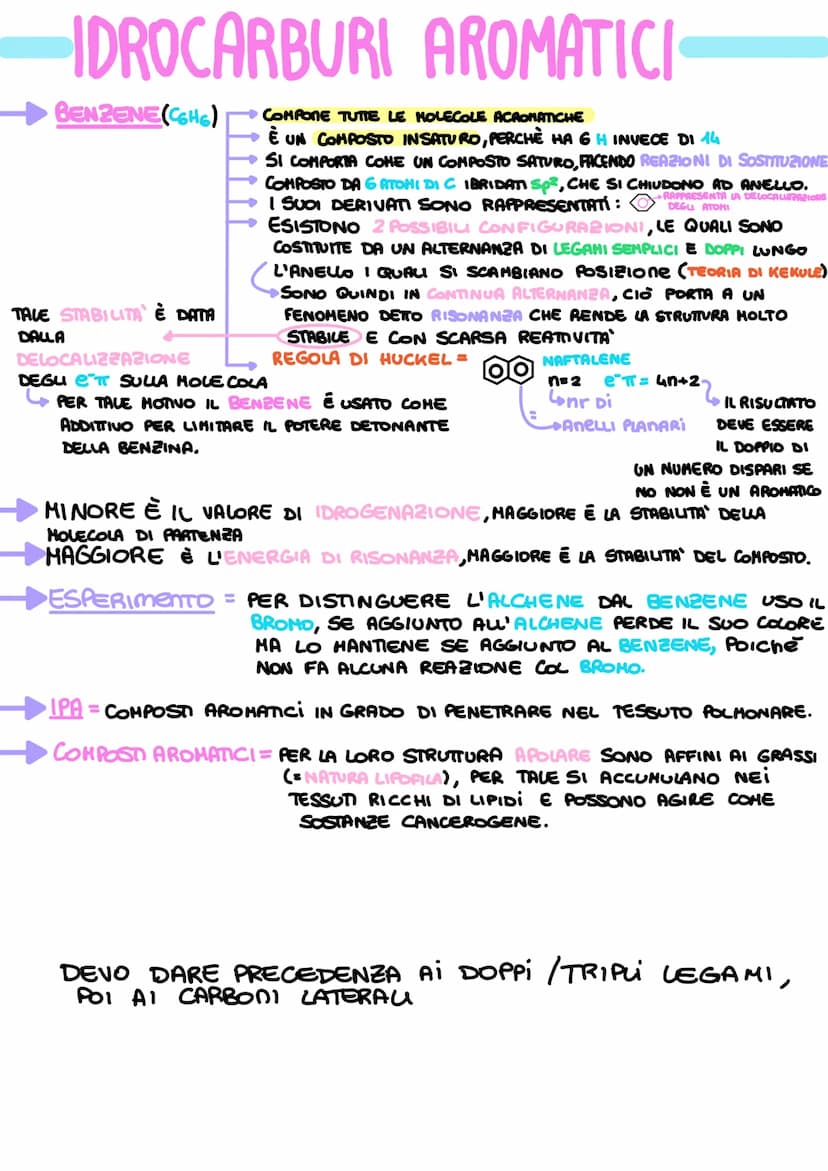 IDROCARBURI AROMATICI
BENZENE (C6H6)
COMPONE TUTTE LE MOLECOLE ACROMATICHE
È UN COMPOSTO INSATURO, PERCHÈ HA 6 H INVECE DI 14
SI COMPORTA COME UN COMPOSTO SATURO, FACENDO REAZIONI DI SOSTITUZIONE
COMPOSTO DA 6 ATOMI DI C IBRIDATI Sp², CHE SI CHIUDONO AD ANELLO.
I SUOI DERIVATI SONO RAPPRESENTATI:
RAPPRESENTA LA DELOCALIZZAZIONE
DEGLI ATOMI
ESISTONO 2 POSSIBILI CONFIGURAZIONI, LE QUALI SONO
COSTITUITE DA UN ALTERNANZA DI LEGAMI SEMPLICI E DOPPI LUNGO
L'ANELLO I QUALI SI SCAMBIANO POSIZIONE (TEORIA DI KEKULE)
SONO QUINDI IN CONTINUA ALTERNANZA, CIÒ PORTA A UN
FENOMENO DETTO RISONANZA CHE RENDE LA STRUTTURA MOLTO
STABILE E CON SCARSA REATTIVITA'
TALE STABILITA' È DATA
DALLA
DELOCALIZZAZIONE
DEGLI e⁻π SULLA MOLECOLA
PER TALE MOTIVO IL BENZENE É USATO COME
ADDITTIVO PER LIMITARE IL POTERE DETONANTE
DELLA BENZINA.
REGOLA DI HUCKEL =
NAFTALENE
n=2 e⁻π = 4n+2
nr DI
= ANELLI PLANARI
IL RISULTATO
DEVE ESSERE
IL DOPPIO DI
UN NUMERO DISPARI SE
NO NON È UN AROMATICO
MINORE È IL VALORE DI IDROGENAZIONE, MAGGIORE É LA STABILITA' DELLA
MOLECOLA DI PARTENZA
MAGGIORE È L'ENERGIA DI RISONANZA, MAGGIORE É LA STABILITA' DEL COMPOSTO.
ESPERIMENTO = PER DISTINGUERE L'ALCHENE DAL BENZENE USO IL
BROMO, SE AGGIUNTO ALL'ALCHENE PERDE IL SUO COLORE
MA LO MANTIENE SE AGGIUNTO AL BENZENE, POICHÉ
NON FA ALCUNA REAZIONE COL BROMO.
IPA = COMPOSTI AROMATICI IN GRADO DI PENETRARE NEL TESSUTO POLMONARE.
COMPOSTI AROMATICI = PER LA LORO STRUTTURA APOLARE SONO AFFINI AI GRASSI
(= NATURA LIPOFILA), PER TALE SI ACCUMULANO NEI
TESSUTI RICCHI DI LIPIDI E POSSONO AGIRE COME
SOSTANZE CANCEROGENE.
DEVO DARE PRECEDENZA AI DOPPI / TRIPLI LEGAMI,
POI AI CARBONI LATERALI